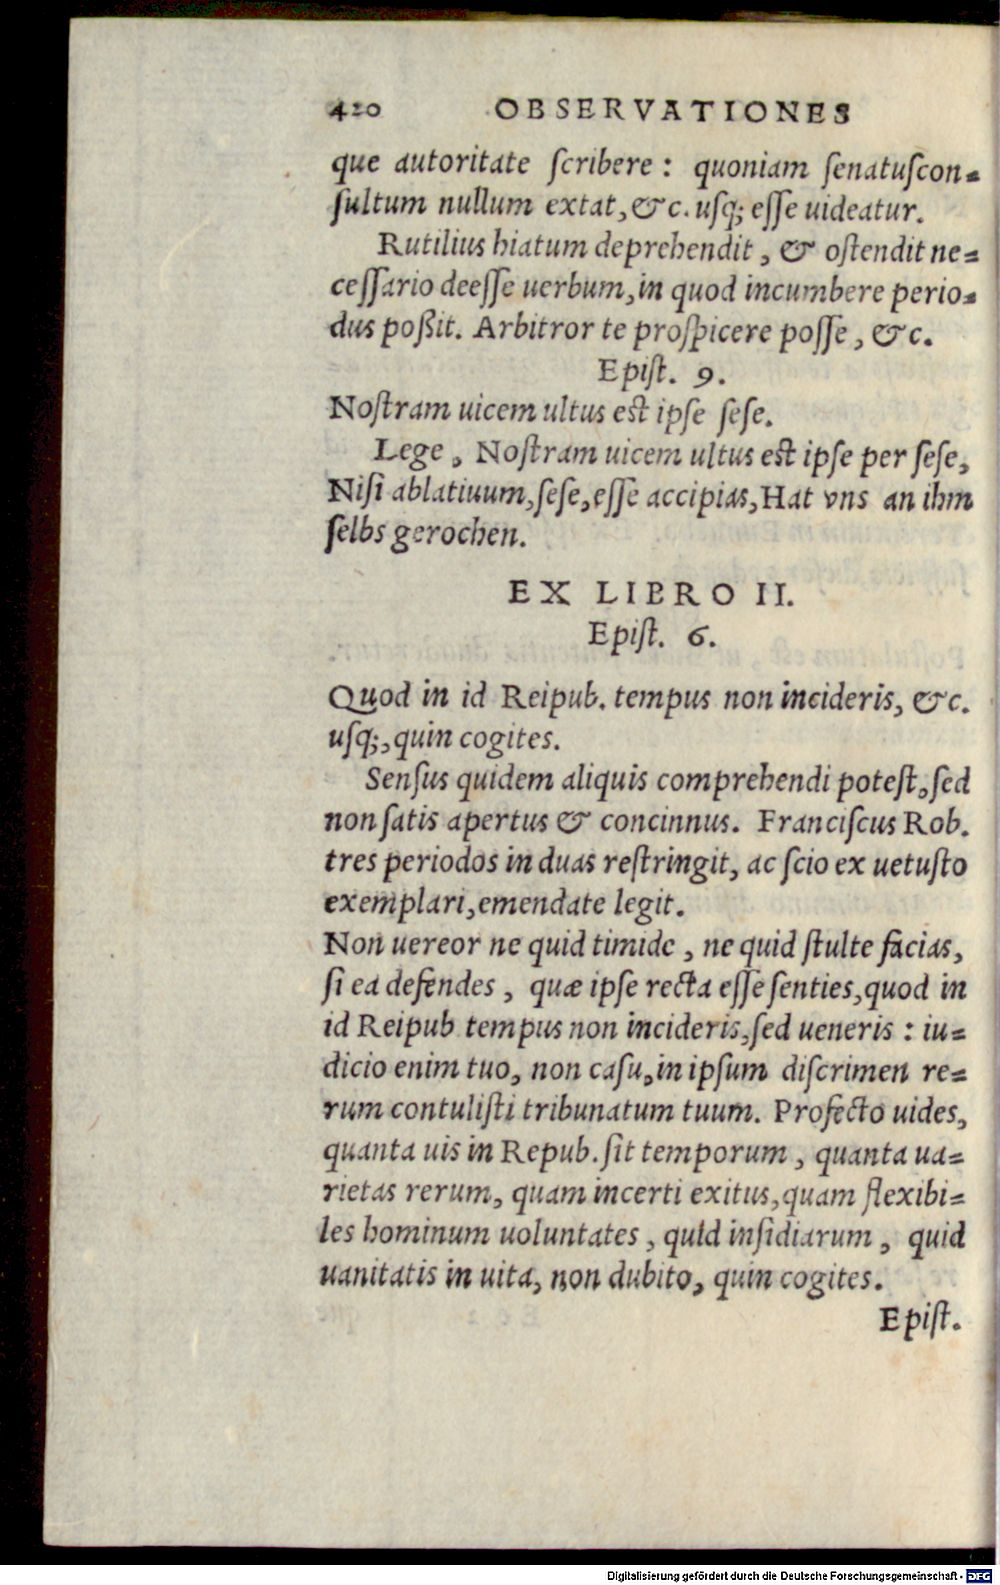 420 OBSERVATIONES
que autoritate ſcribere : quoniam ſenatuſcon-
ſultum nullum extat, &c. uſq; eſſe uideatur.
Rutilius hiatum deprehendit, & oſtendit ne-
ceſſario deeſſe uerbum, in quod incumbere perio-
dus poßit. Arbitror te proſpicere poſſe, &c.
Epiſt. 9.
Noſtram uicem ultus est ipſe ſeſe.
Lege, Noſtram uicem ultus est ipſe per ſeſe,
Niſi ablatiuum, ſeſe, eſſe accipias, Hat vns an ihm
ſelbs gerochen.
EX LIBRO II.
Epiſt. 6.
Quod in id Reipub. tempus non incideris, &c.
uſq;, quin cogites.
Senſus quidem aliquis comprehendi poteſt, ſed
non ſatis apertus & concinnus. Franciſcus Rob.
tres periodos in duas reſtringit, ac ſcio ex uetuſto
exemplari, emendate legit.
Non uereor ne quid timide, ne quid ſtulte facias,
ſi ea defendes, quæ ipſe recta eſſe ſenties, quod in
id Reipub tempus non incideris, ſed ueneris : iu-
dicio enim tuo, non caſu, in ipſum diſcrimen re-
rum contuliſti tribunatum tuum. Profecto uides,
quanta uis in Repub. ſit temporum, quanta ua-
rietas rerum, quam incerti exitus, quam flexibi-
les hominum uoluntates, quid inſidiarum, quid
uanitatis in uita, non dubito, quin cogites.
Epiſt.
Digitalisierung gefördert durch die Deutsche Forschungsgemeinschaft - DFG